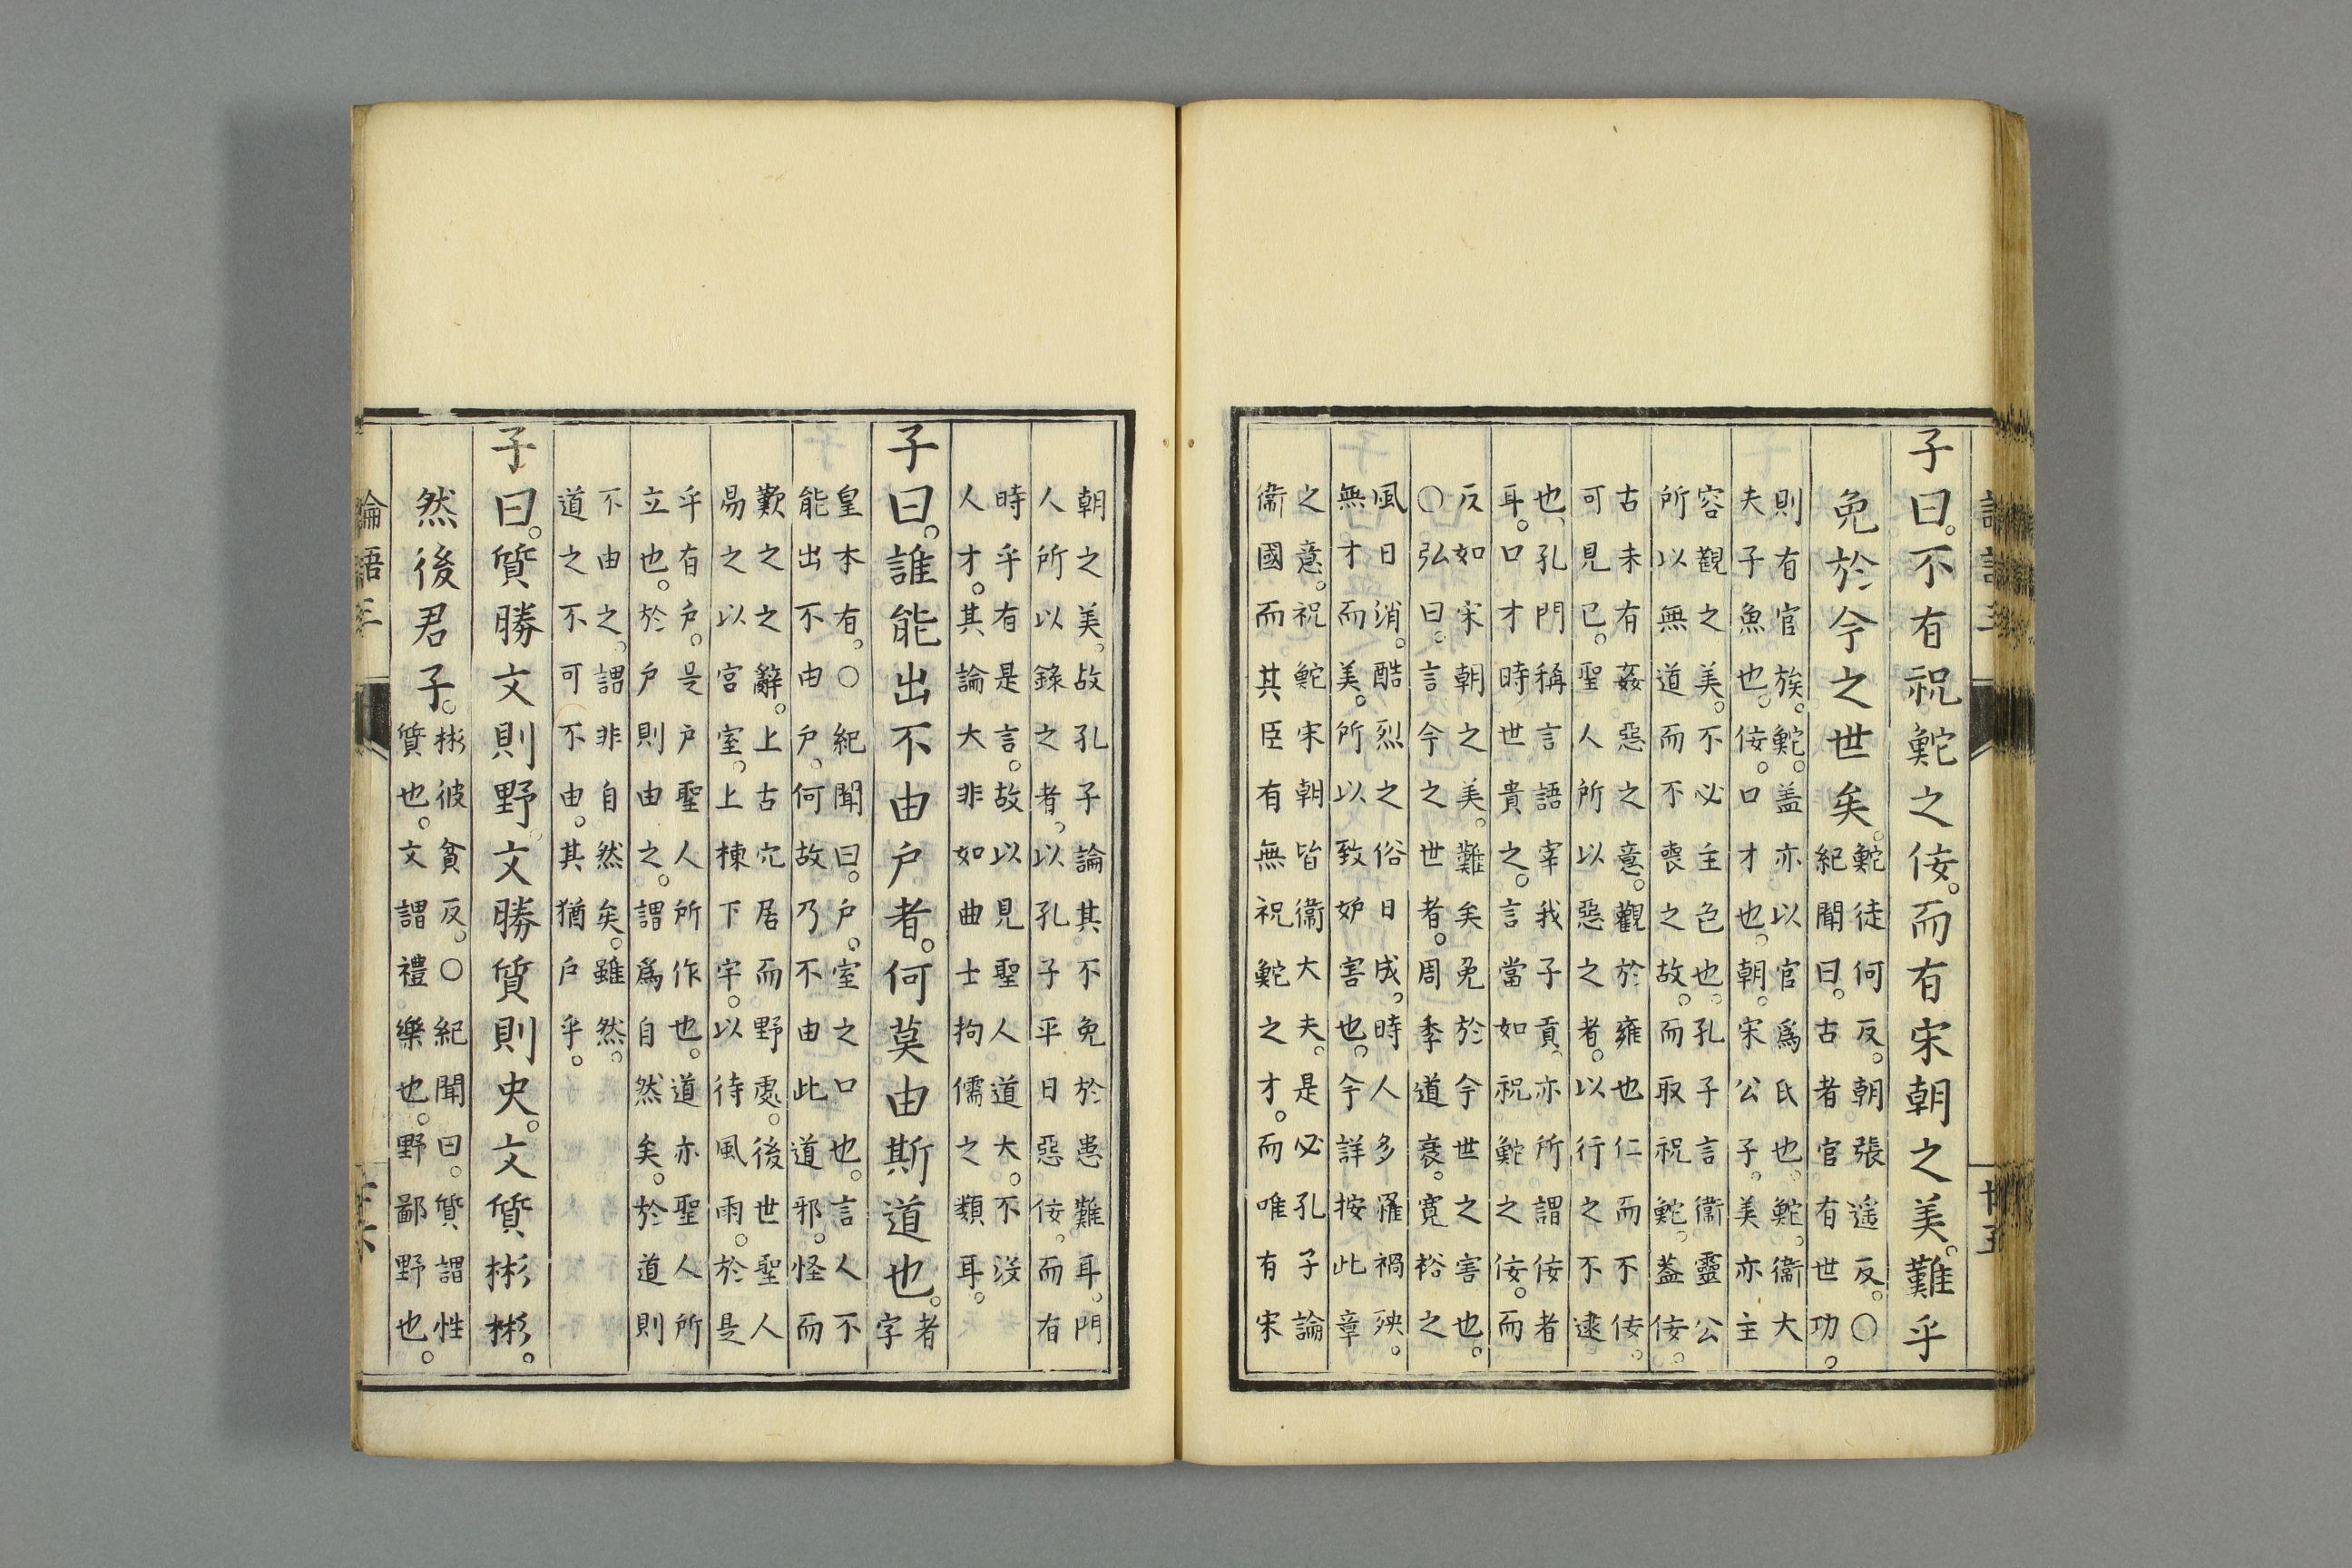 子曰。不有祝鮀之佞。而有宋朝之美。難乎
免於今之世矣。
鮀徒何反。朝張遥反。〇
紀聞曰。古者官有世功。
則有官族。鮀。盖亦以官爲氏也。鮀。衞大
夫子魚也。佞。口才也。朝。宋公子。美亦主
容觀之美。不必主色也。孔子言衞靈公
所以無道而不喪之故。而取祝鮀。葢佞
古未有姦惡之意。觀於雍也仁而不佞。
可見已。聖人所以惡之者。以行之不逮
也、孔門稱言語宰我子貢。亦所謂佞者
耳。口才時世貴之。言當如祝鮀之佞。而
反如宋朝之美。難矣免於今世之害也。
〇弘曰。言今之世者。周季道衰。寬裕之
風日消。酷烈之俗日成。時人多羅禍殃。
無才而美。所以致妒害也。今詳按此章
之意。祝鮀宋朝皆衞大夫。是必孔子論
衞國而其臣有無祝鮀之才。而唯有宋
朝之美。故孔子論其不免於患難耳。門
人所以錄之者。以孔子平日惡佞。而有
時乎有是言。故以見聖人道大。不没
人才。其論大非如曲士拘儒之類耳。
子曰。誰能出不由户者。何莫由斯道也。
者
字
皇本有。〇紀聞曰。户。室之口也。言人不
能出不由户。何故乃不由此道邪。怪而
歎之之辭。上古穴居而野處。後世聖人
易之以宮室。上棟下宇。以待風雨。於是
乎有户。是户聖人所作也。道亦聖人所
立也。於户則由之。謂爲自然矣。於道則
不由之。謂非自然矣。雖然。
道之不可不由。其猶户乎。
子曰。質勝文則野。文勝質則史。文質彬彬。
然後君子。
彬彼貧反。〇紀聞曰。質謂性
質也。文謂禮樂也。野鄙野也。
論語三